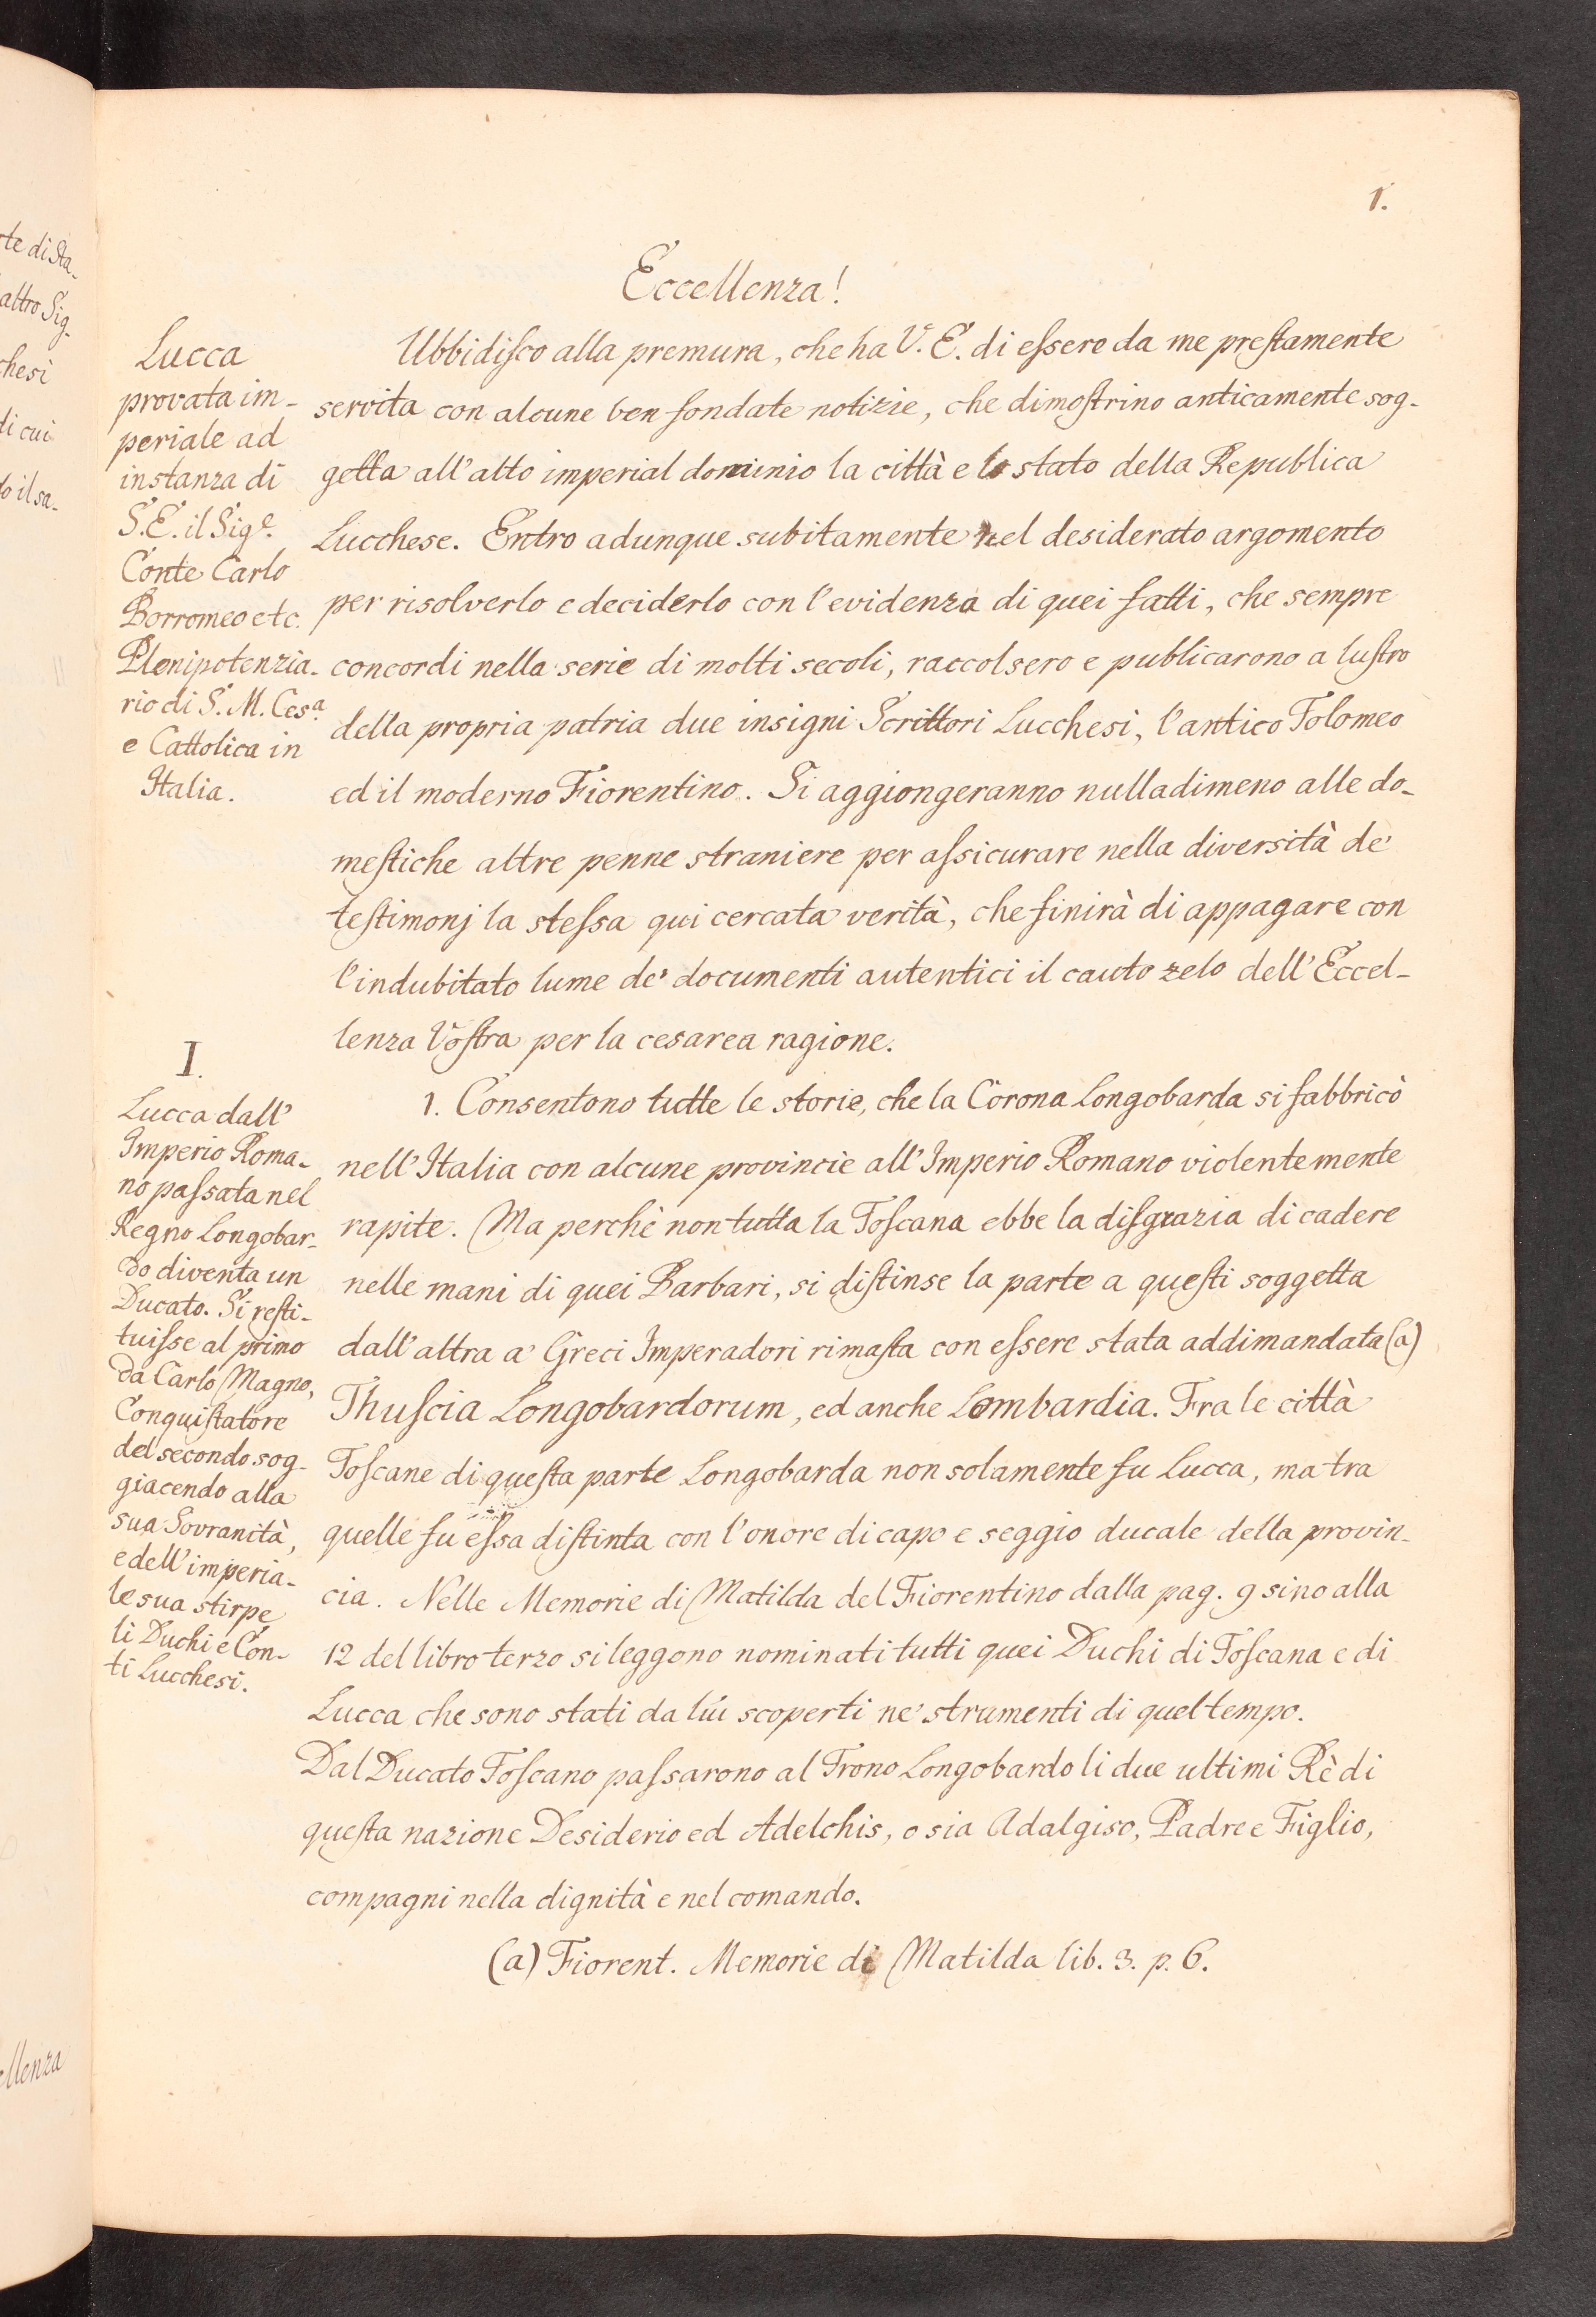 1.
Eccellenza!
Lucca
provata im-
periale ad
instanza di
S.E. il Sigᵉ.
Conte Carlo
Borromeo etc.
Plenipotenzia-
rio di S. M. Cesᵃ.
e Cattolica in
Italia.
Ubbidisco alla premura, che ha V. E. di essere da me prestamente
servita con alcune ben fondate notizie, che dimostrino anticamente sog-
getta all'alto imperial dominio la città e lo stato della Republica
Lucchese. Entro adunque subitamente nel desiderato argomento
per risolverlo e deciderlo con l'evidenza di quei fatti, che sempre
concordi nella serie di molti secoli, raccolsero e publicarono a lustro
della propria patria due insigni Scrittori Lucchesi, l'antico Tolomeo
ed il moderno Fiorentino. Si aggiongeranno nulladimeno alle do-
mestiche altre penne straniere per assicurare nella diversità de'
testimonj la stessa qui cercata verità, che finirà di appagare con
l'indubitato lume de' documenti autentici il cauto zelo dell'Eccel-
lenza Vostra per la cesarea ragione.
I.
Lucca dall'
Imperio Roma-
no passata nel
Regno Longobar-
do diventa un
Ducato. Si resti-
tuisse al primo
da Carlo Magno,
Conquistatore
del secondo sog-
giacendo alla
sua Sovranità,
e dell'imperia-
le sua stirpe
li Duchi e Con-
ti Lucchesi.
1. Consentono tutte le storie, che la Corona Longobarda si fabbricò
nell'Italia con alcune provincie all'Imperio Romano violentemente
rapite. Ma perchè non tutta la Toscana ebbe la disgrazia di cadere
nelle mani di quei Barbari, si distinse la parte a questi soggetta
dall'altra a' Greci Imperadori rimasta con essere stata addimandata (a)
Thuscia Longobardorum, ed anche Lombardia. Fra le città
Toscane di questa parte Longobarda non solamente fu Lucca, ma tra
quelle fu essa distinta con l'onore di capo e seggio ducale della provin-
cia. Nelle Memorie di Matilda del Fiorentino dalla pag. 9 sino alla
12 del libro terzo si leggono nominati tutti quei Duchi di Toscana e di
Lucca che sono stati da lui scoperti ne' strumenti di quel tempo.
Dal Ducato Toscano passarono al Trono Longobardo li due ultimi Rè di
questa nazione Desiderio ed Adelchis, o sia Adalgiso, Padre e Figlio,
compagni nella dignità e nel comando.
(a) Fiorent. Memorie di Matilda lib. 3. p. 6.
rte di Sta-
altro Sig-
chesi
di cui
to il sa-
ellenza